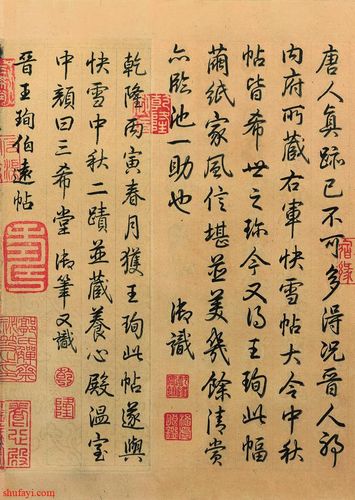 唐人真跡已不可多得況晉人耶
內府所藏右軍快雪帖大令中秋
帖皆希世之珍今又得王珣此幅
繭紙家風信堪並美幾餘清賞
亦臨池一助也 御識
乾隆
乾隆丙寅春月獲王珣此帖遂與
快雪中秋二蹟並藏養心殿溫室
中顏曰三希堂 御筆又識
乾隆
晉王珣伯遠帖
shufayi.com